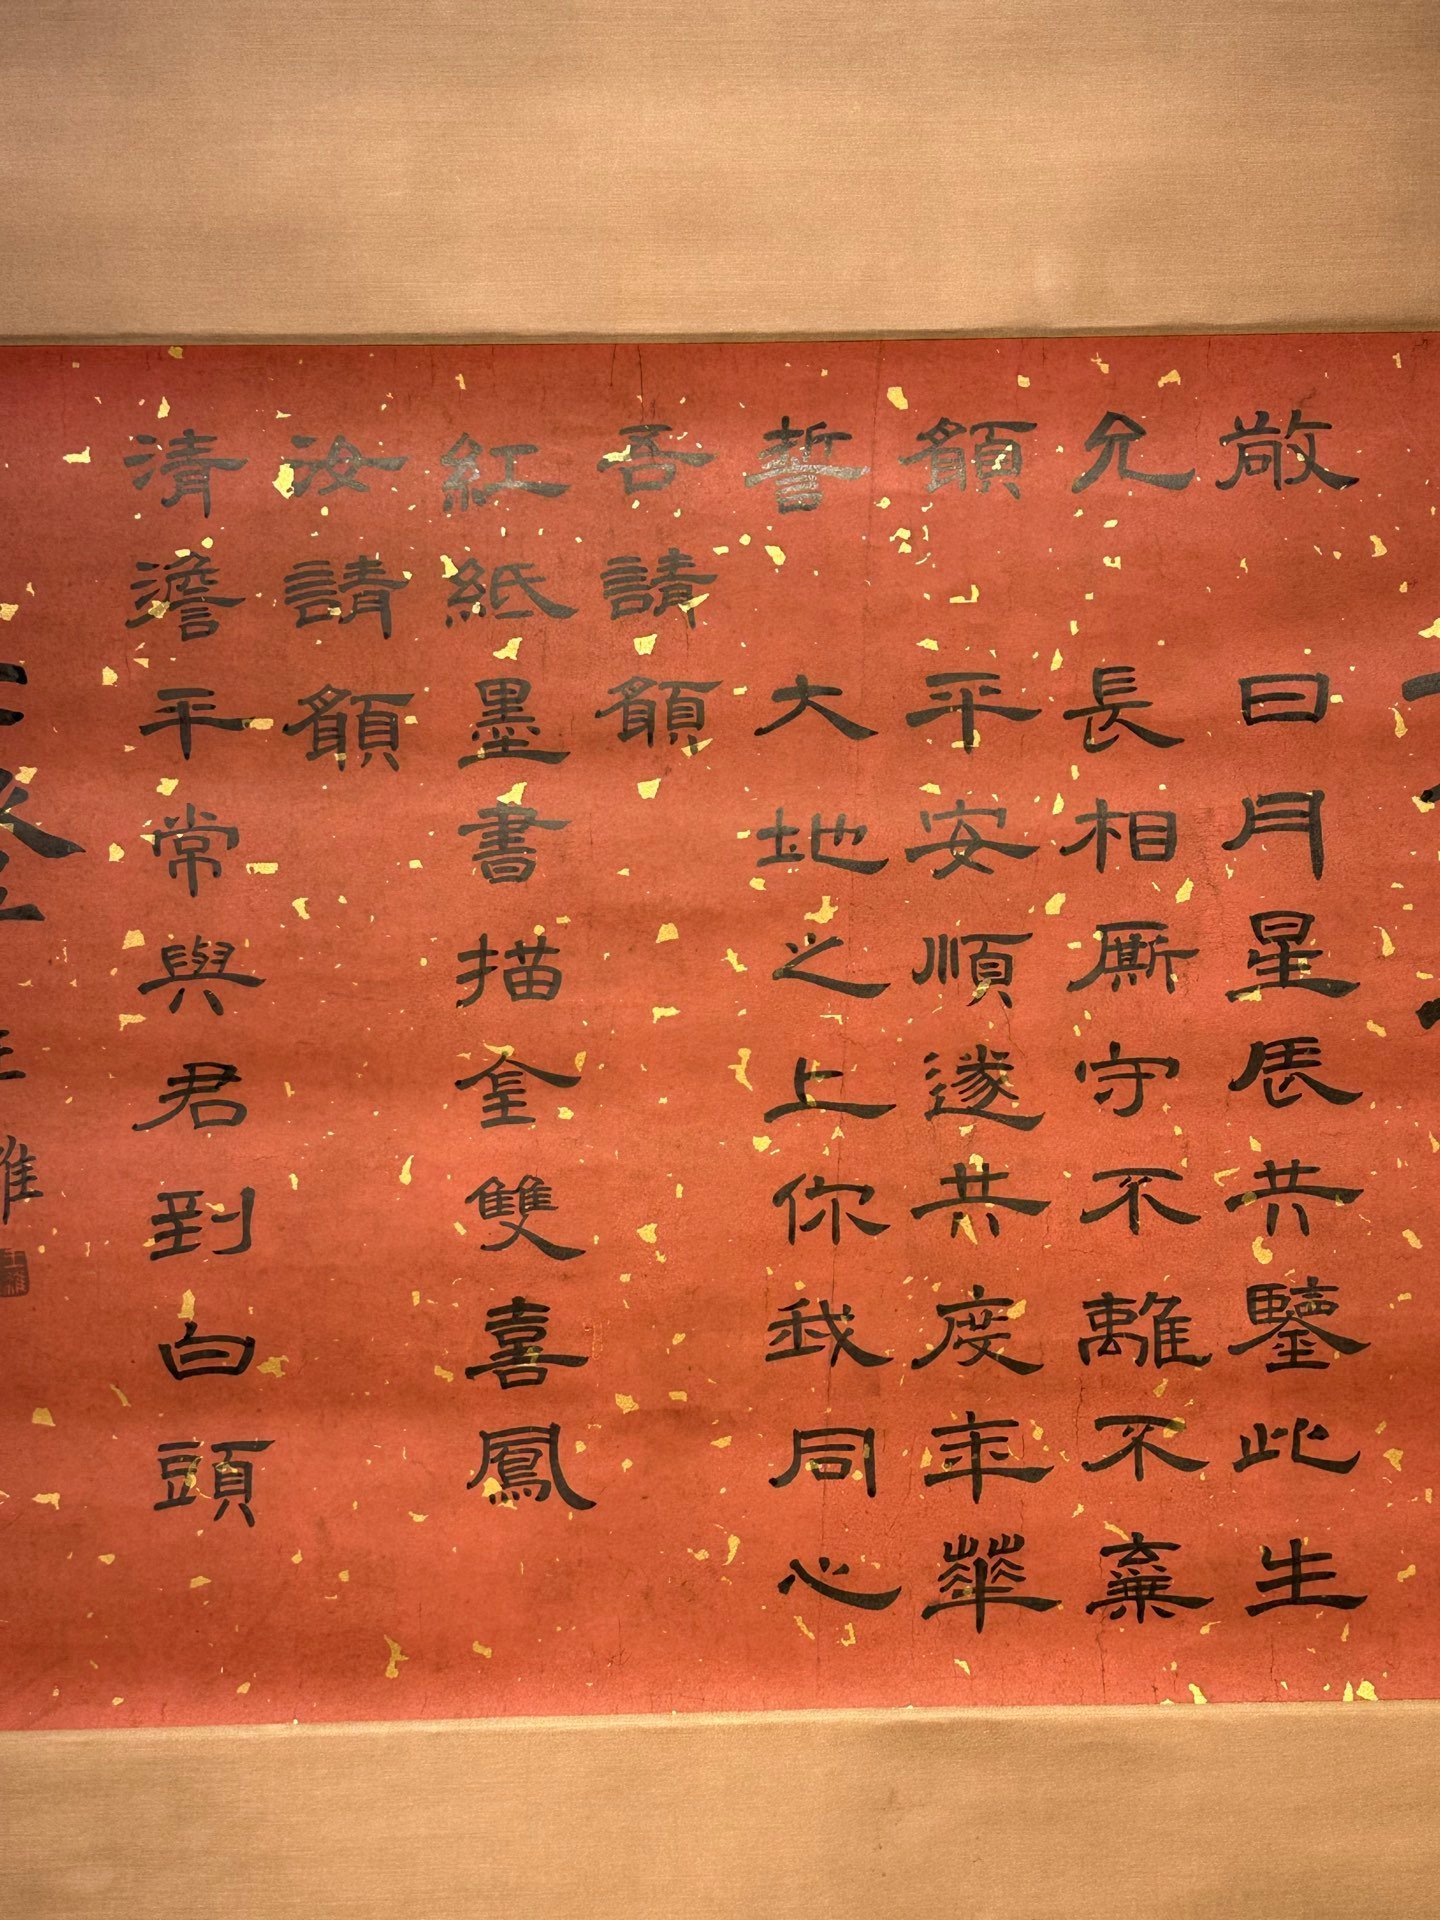 敬 日月星辰共鑒此生
允 長相厮守不離不棄
願 平安順遂共度年華
誓 大地之上你我同心
吾請願
紅紙墨書描金雙喜鳳
汝請願
清澹平常與君到白頭